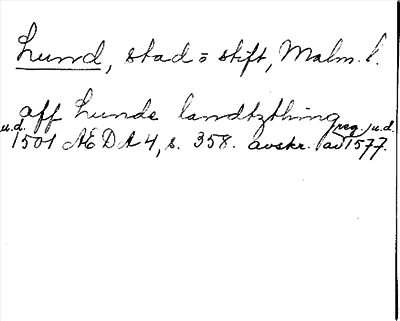 Lund, stad o stift, Malm. l.
aff Lunde landtzthing
u.d. 1501 AEDA 4, s. 358. avskr. (reg.) av u.d. 1577.